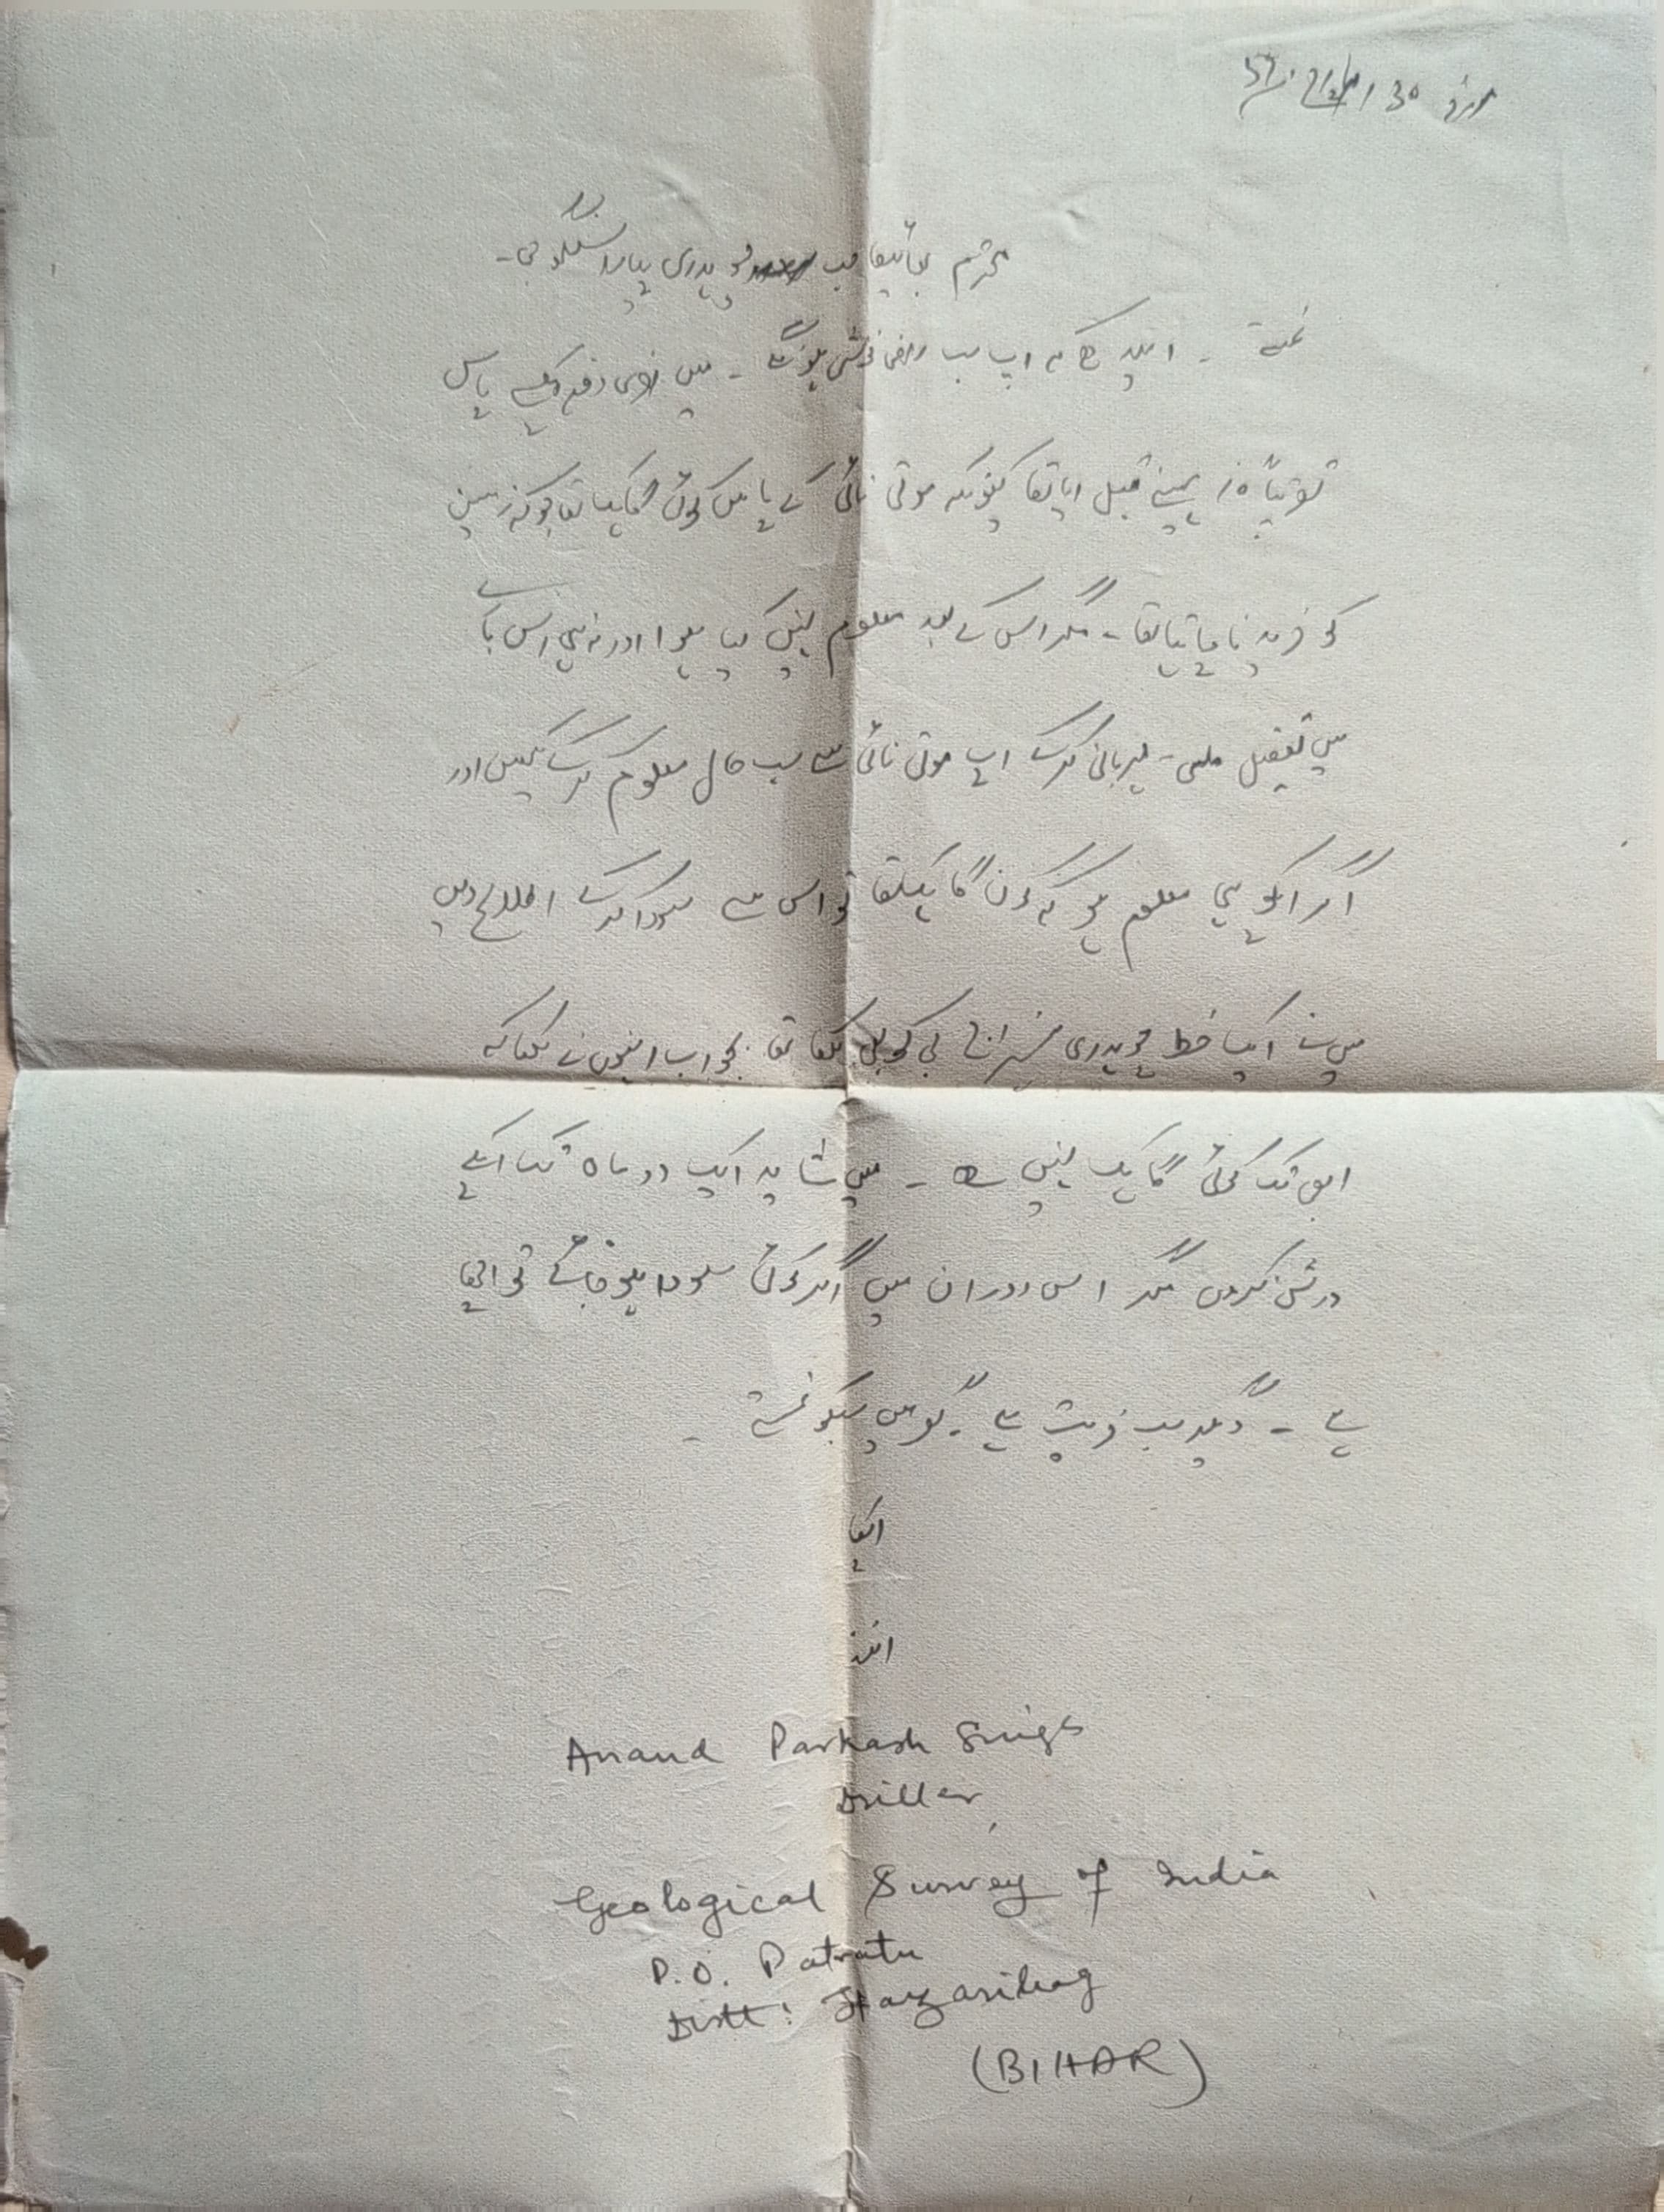 مورخہ 30 مارچ
محترم بھائیصاحب چوہدری پیارا سنگھ جی۔
نمستے ۔ امید ہے کہ آپ سب راضی خوشی ہونگے ۔ میں دفعہ آپکے پاس
تقریباً 10 مہینے قبل آیا تھا کیونکہ موتی نائی کے پاس کوئی گاہک تھا جو کہ زمین
کو خریدنا چاہتا تھا ۔ مگر اس کے بعد معلوم نہیں کیا ہوا اور نہ ہی اس بارے
میں تفصیل ملی ۔ مہربانی کرکے آپ موتی نائی سے سب حال معلوم کرکے لکھیں اور
اگر آپکو ہی معلوم ہو کہ کون گاہک تھا تو اس سے سودا کرکے اطلاع دیں
میں نے ایک خط چوہدری جی کو بھی لکھا تھا جواب انہوں نے لکھا کہ
ابھی تک کوئی گاہک نہیں ہے ۔ میں شاید ایک دو ماہ تک آپکے
درشن کروں مگر اس دوران میں اگر کوئی سودا ہو جائے تو اچھا
ہے ۔ دیگر سب خیریت ہے ۔ گھر میں سبکو نمستے ۔
آپکا
آنند
Anand Parkash Singh
Driller,
Geological Survey of India
P.O. Patratu
Distt: Hazaribag
(BIHAR)